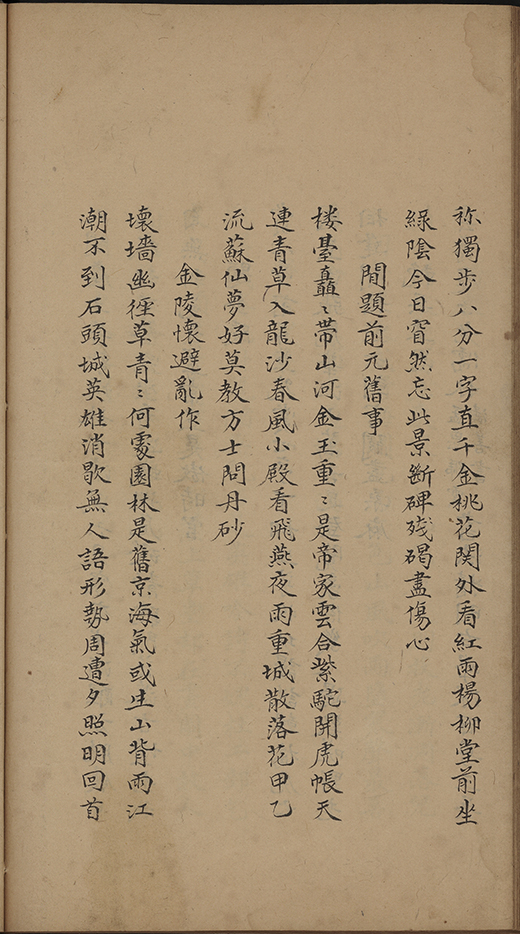 称獨步八分一字直千金桃花関外看紅雨楊柳堂前坐
綠陰今日窅然忘此景斷碑殘碣盡傷心
間題前元舊事
楼臺矗〻帯山河金玉重〻是帝家雲合紫駝開虎帳天
連青草入龍沙春風小殿看飛燕夜雨重城散落花甲乙
流蘇仙夢好莫教方士問丹砂
金陵懐避亂作
壊墻幽徑草青〻何處園林是舊京海氣或生山背雨江
潮不到石頭城英雄消歇無人語形勢周遭夕照明回首